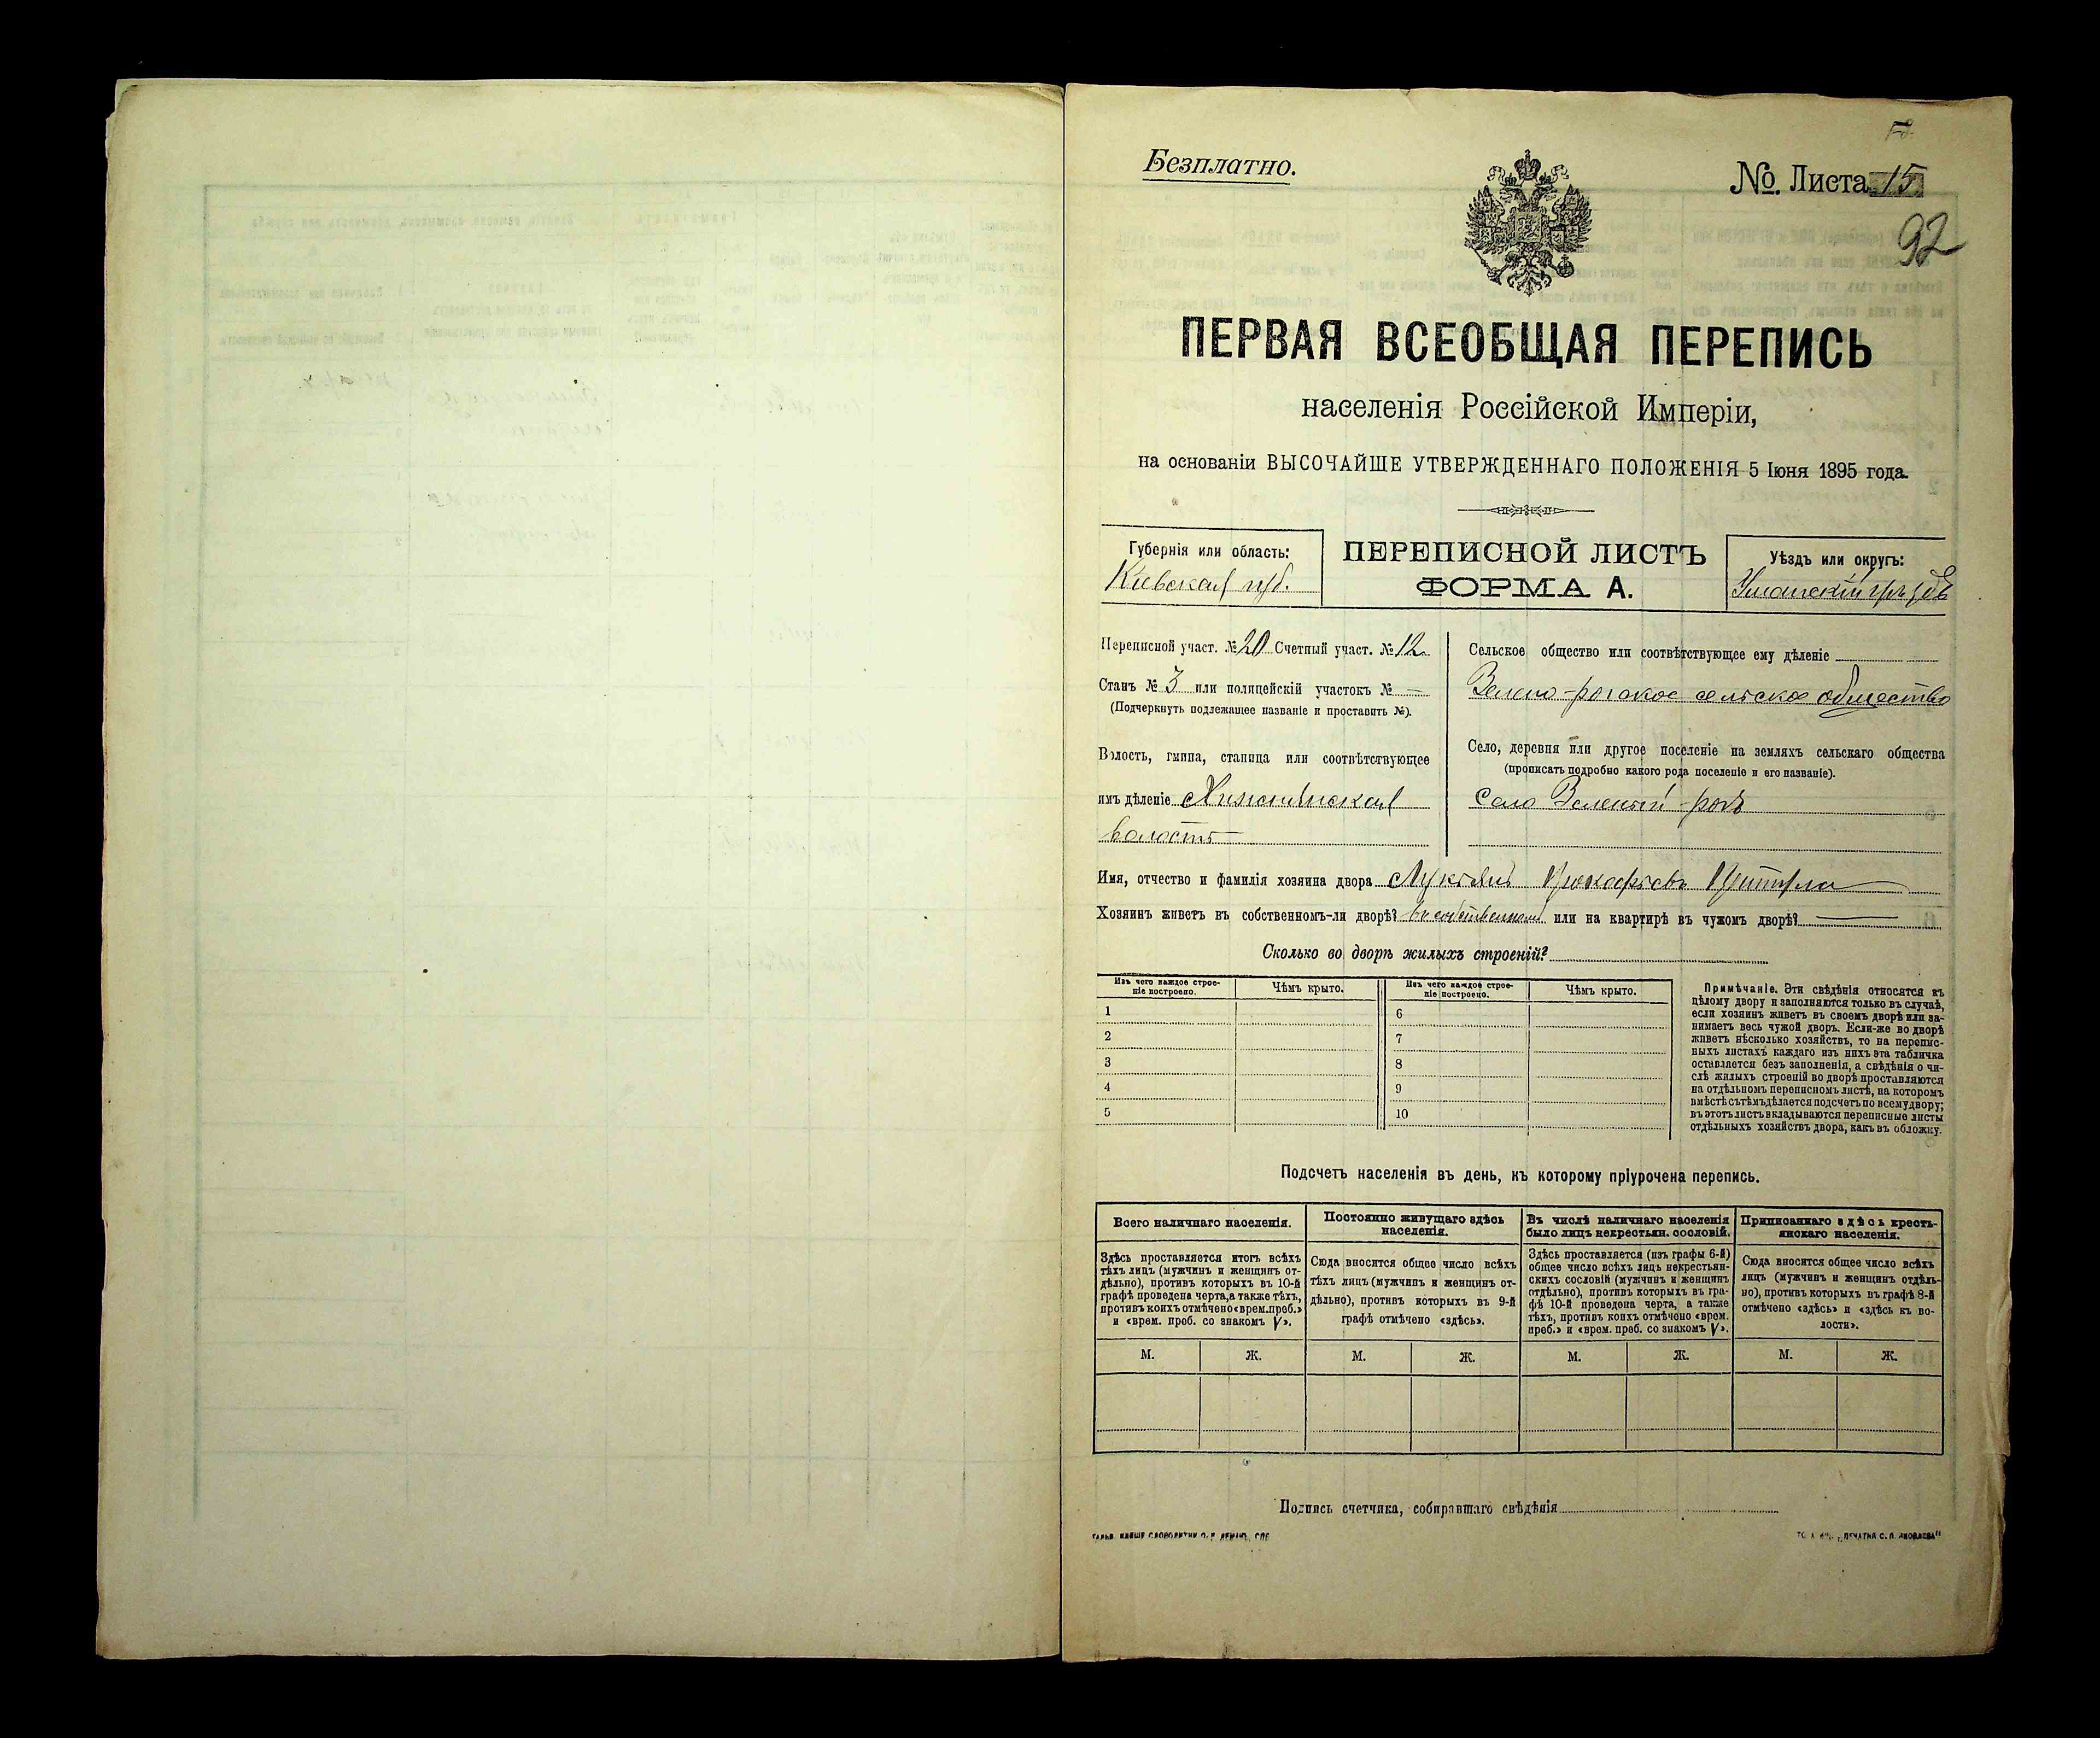 Безплатно.
№ Листа 15
92
ПЕРВАЯ ВСЕОБЩАЯ ПЕРЕПИСЬ
населенія Россійской Имперіи,
на основаніи ВЫСОЧАЙШЕ УТВЕРЖДЕННАГО ПОЛОЖЕНІЯ 5 Іюня 1895 года.
Губернія или область:
Кіевская губ.
ПЕРЕПИСНОЙ ЛИСТЪ
ФОРМА А.
Уѣздъ или округъ:
Уманскій уѣздъ
Переписной участ. № 20 Счетный участ. № 12
Станъ № 3 или полицейскій участокъ № —
(Подчеркнуть подлежащее названіе и проставить №).
Волость, гмина, станица или соотвѣтствующее
имъ дѣленіе
волость
Сельское общество или соотвѣтствующее ему дѣленіе
Зелено-рогское сельское общество
Село, деревня или другое поселеніе на земляхъ сельскаго общества
(прописать подробно какого рода поселеніе и его названіе).
Село Зеленый-рогъ
Имя, отчество и фамилія хозяина двора Лукіянъ Прокофьевъ
Хозяинъ живетъ въ собственномъ-ли дворѣ? въ собственномъ или на квартирѣ въ чужомъ дворѣ? —
Сколько во дворѣ жилыхъ строеній?
Изъ чего каждое строе-
ніе построено.
Чѣмъ крыто.
Изъ чего каждое строе-
ніе построено.
Чѣмъ крыто.
1
2
3
4
5
6
7
8
9
10
Примѣчаніе. Эти свѣдѣнія относятся къ
цѣлому двору и заполняются только въ случаѣ,
если хозяинъ живетъ въ своемъ дворѣ или за-
нимаетъ весь чужой дворъ. Если-же во дворѣ
живетъ нѣсколько хозяйствъ, то на перепис-
ныхъ листахъ каждаго изъ нихъ эта табличка
оставляется безъ заполненія, а свѣдѣнія о чи-
слѣ жилыхъ строеній во дворѣ проставляются
на отдѣльномъ переписномъ листѣ, на которомъ
вмѣстѣ съ тѣмъ дѣлается подсчетъ по всему двору;
въ этотъ листъ вкладываются переписные листы
отдѣльныхъ хозяйствъ двора, какъ въ обложку.
Подсчетъ населенія въ день, къ которому пріурочена перепись.
Всего наличнаго населенія.
Здѣсь проставляется итогъ всѣхъ
тѣхъ лицъ (мужчинъ и женщинъ от-
дѣльно), противъ которыхъ въ 10-й
графѣ проведена черта, а также тѣхъ,
противъ коихъ отмѣчено «врем. преб.»
и «врем. преб. со знакомъ V».
Постоянно живущаго здѣсь
населенія.
Сюда вносится общее число всѣхъ
тѣхъ лицъ (мужчинъ и женщинъ от-
дѣльно), противъ которыхъ въ 9-й
графѣ отмѣчено «здѣсь».
Въ числѣ наличнаго населенія
было лицъ некрестьян. сословій.
Здѣсь проставляется (изъ графы 6-й)
общее число всѣхъ лицъ некрестьян-
скихъ сословій (мужчинъ и женщинъ
отдѣльно), противъ которыхъ въ гра-
фѣ 10-й проведена черта, а также
тѣхъ, противъ коихъ отмѣчено «врем.
преб.» и «врем. преб. со знакомъ V».
Приписаннаго здѣсь кресть-
янскаго населенія.
Сюда вносится общее число всѣхъ
лицъ (мужчинъ и женщинъ отдѣль-
но), противъ которыхъ въ графѣ 8-й
отмѣчено «здѣсь» и «здѣсь къ во-
лости».
М. Ж. М. Ж. М. Ж. М. Ж.
Подпись счетчика, собиравшаго свѣдѣнія